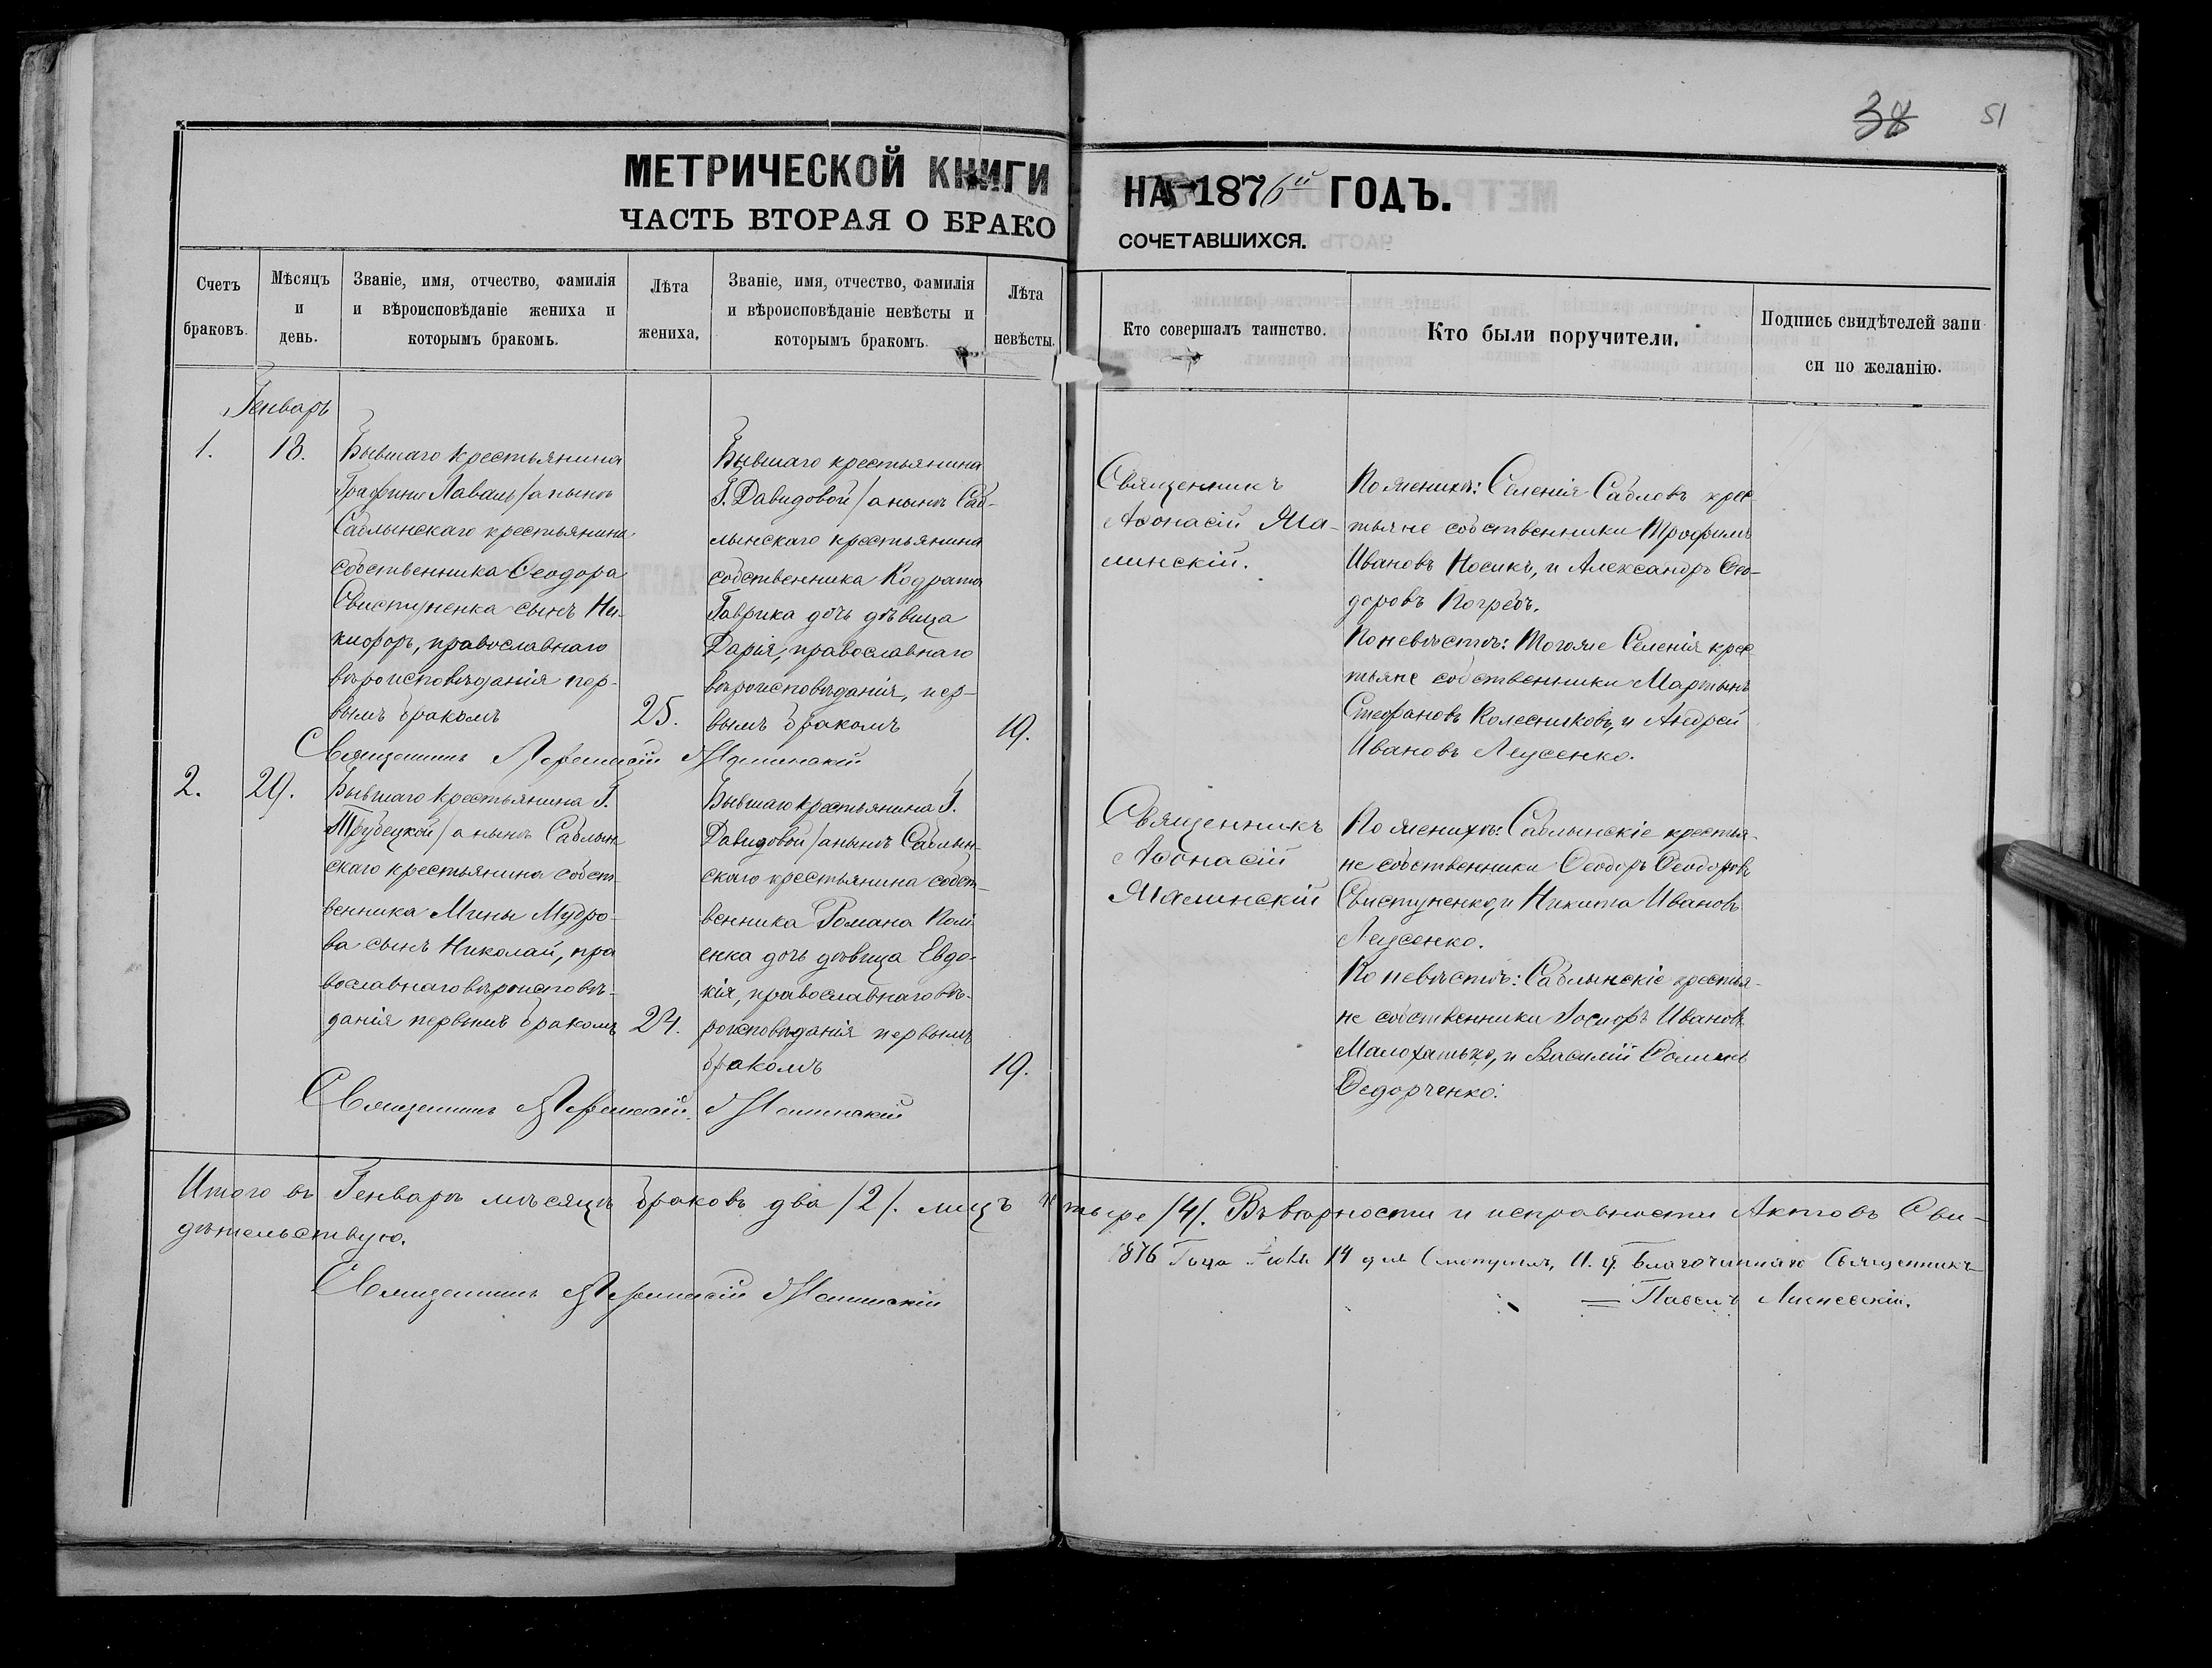 38 51
МЕТРИЧЕСКОЙ КНИГИ НА 1876й ГОДЪ.
ЧАСТЬ ВТОРАЯ О БРАКО
СОЧЕТАВШИХСЯ.
Счетъ
браковъ.
Мѣсяцъ
и
день.
Званіе, имя, отчество, фамилія
и вѣроисповѣданіе жениха и
которымъ бракомъ.
Лѣта
жениха.
Званіе, имя, отчество, фамилія
и вѣроисповѣданіе невѣсты и
которымъ бракомъ.
Лѣта
невѣсты.
Кто совершалъ таинство.
Кто были поручители.
Подпись свидѣтелей запи
си по желанію.
Генварь
1.
18.
Бывшаго крестьянина
Графини Лаваль /а нынѣ
Саблынскаго крестьянина
собственника Ѳеодора
Свистуненка сынъ Ни-
кифоръ, православнаго
вѣроисповѣданія пер-
вымъ бракомъ
25.
Бывшаго крестьянина
Г. Давидовой /а нынѣ Саб-
лынскаго крестьянина
собственника Кодрата
Гаврика дочь дѣвица
Дарія, православнаго
вѣроисповѣданія, пер-
вымъ бракомъ
19.
Священникъ
Аѳонасій Ма-
линскій.
По женихѣ: Селенія Сабловъ крес-
тьяне собственники Трофимъ
Ивановъ Носикъ, и Александръ Ѳео-
доровъ Погребъ.
По невѣстѣ: Тогоже Селенія крес-
тьяне собственники Мартынъ
Стефановъ Колесниковъ, и Андрей
Ивановъ Леусенко.
Священникъ Аѳанасій Малинскій
2.
29.
Бывшаго крестьянина Г.
Трубецкой /а нынѣ Саблын
скаго крестьянина собст-
венника Мины Мудро-
ва сынъ Николай, пра
вославнаго вѣроисповѣ-
данія первымъ бракомъ
24.
Бывшаго крестьянина Г.
Давидовой /а нынѣ Саблын-
скаго крестьянина собст-
венника Романа
енка дочь дѣвица Евдо-
кія, православнаго вѣ-
роисповѣданія первымъ
бракомъ
19.
Священникъ
Аѳонасій
Малинскій
По женихѣ: Саблынскіе крестья-
не собственники Ѳеодоръ Ѳеодоровъ
Свистуненко, и Никита Ивановъ
Леусенко.
По невѣстѣ: Саблынскіе крестья-
не собственники Іосифъ Ивановъ
Малохатько, и Василій Ѳоминъ
Ѳедорченко.
Священникъ Аѳанасій Малинскій
Итого въ Генварѣ мѣсяцѣ браковъ два /2/. лицъ четыре /4/. Въ вѣрности и исправности Актовъ Сви-
дѣтельствую.
Священникъ Аѳанасій Малинскій
1876 Года 14 дня И. д. Благочиннаго Священникъ
Павелъ